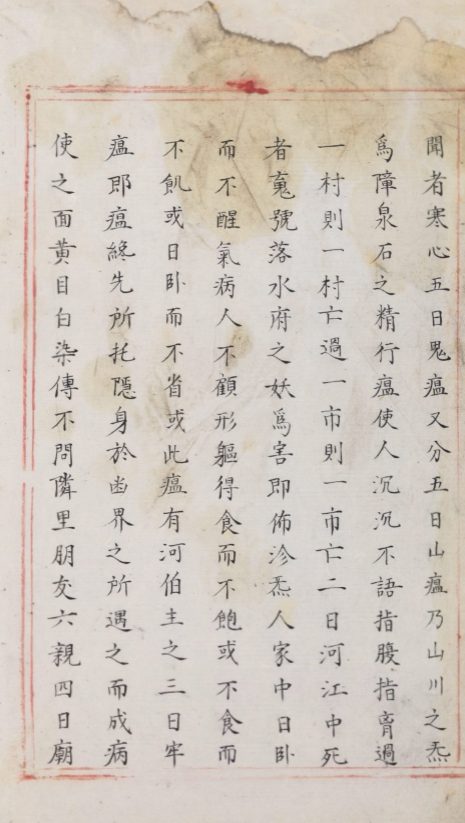 聞者寒心五曰鬼瘟又分五曰山瘟乃山川之炁
爲障泉石之精行瘟使人沉沉不語指腹指過
一村則一村亡過一市則一市亡二曰河江中死
者䰟號落水府之妖爲害即佈沴炁人家中日卧
而不醒氣病人不顧形軀得食而不飽或不食而
不飢或日卧而不省或此瘟有河伯主之三曰牢
瘟即瘟終先所托隱身於凾界之所遇之而成病
使之面黃目白染傳不問隣里朋友六親四曰廟